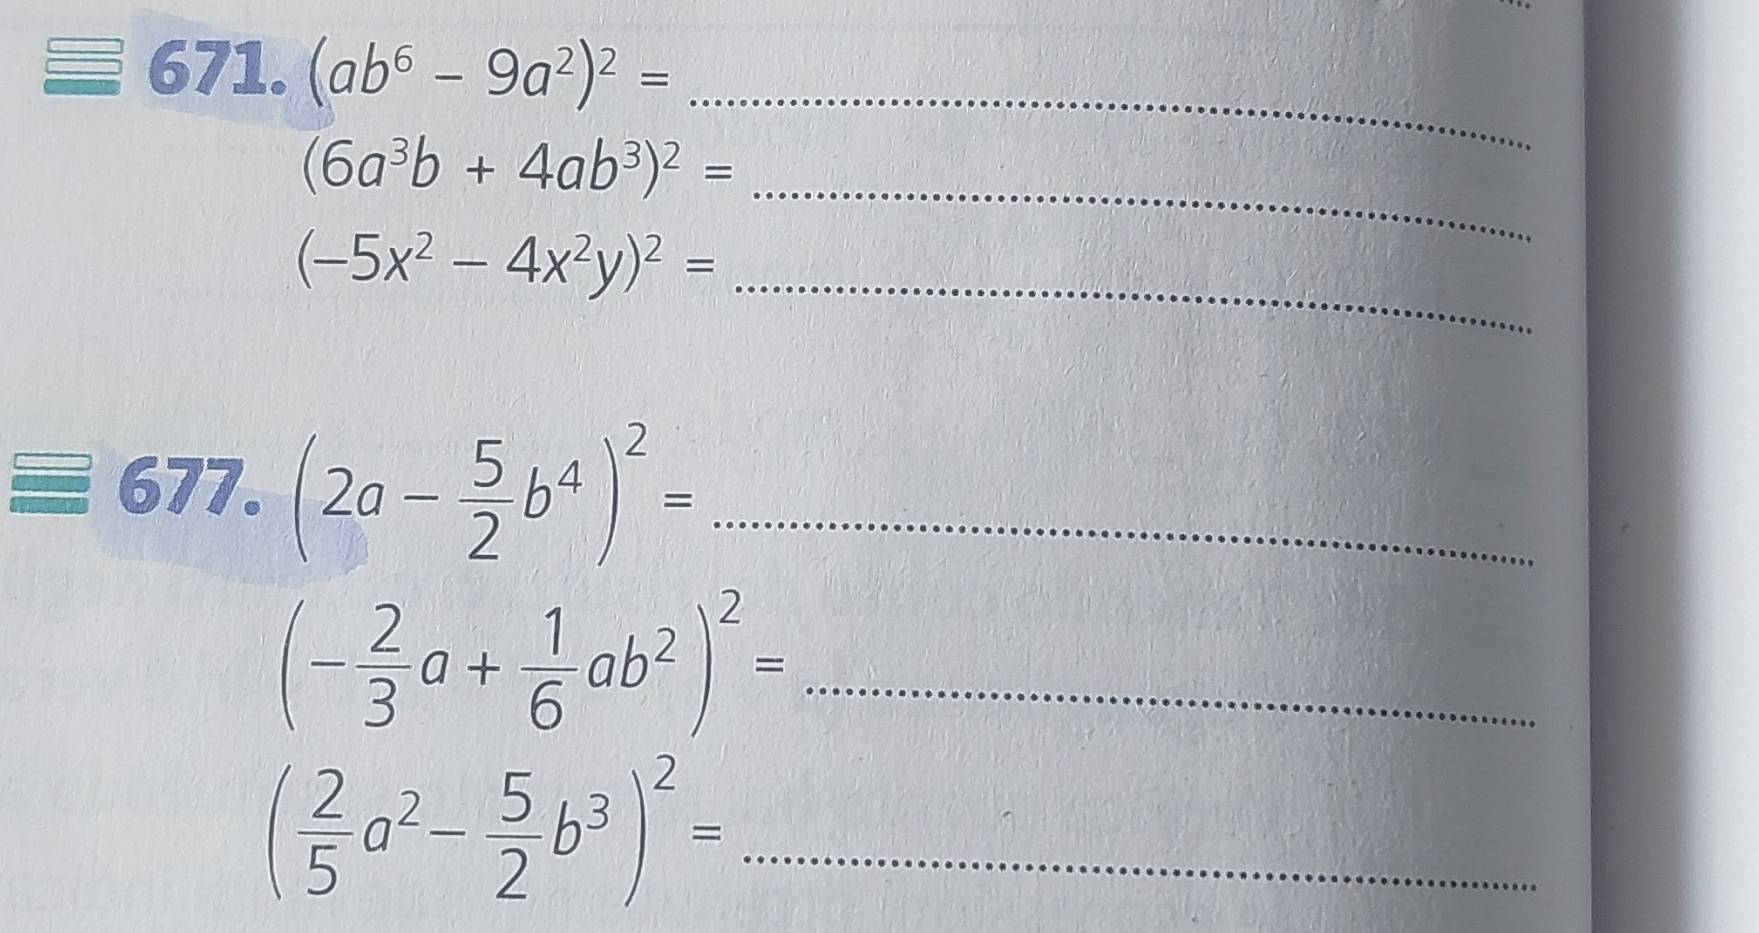 671. (ab⁶ − 9a²)² = ........
(6a³b + 4ab³)² = ........
(−5x² − 4x²y)² = ........
677. (2a − 5/2 b⁴)² = ........
(−2/3 a + 1/6 ab²)² = ........
(2/5 a² − 5/2 b³)² = ........